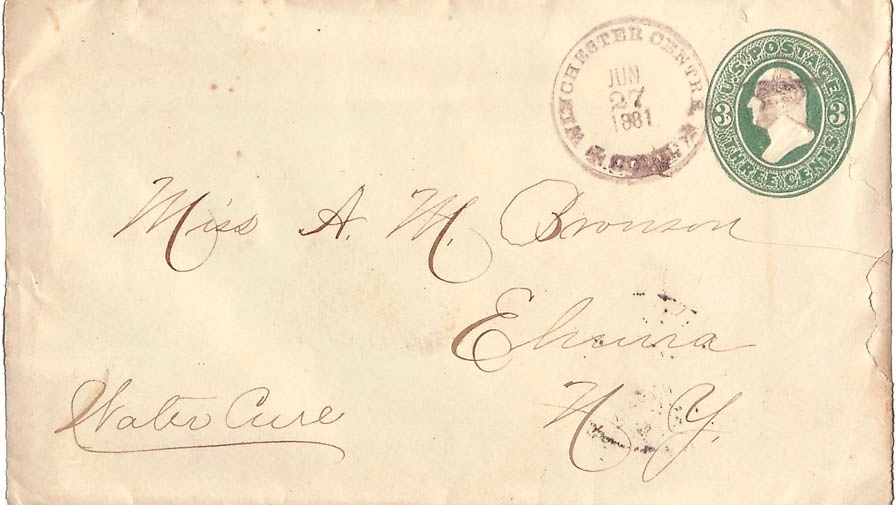 WINCHESTER CENTRE
JUN
27
1881
CONN.
U.S. POSTAGE
3 3
THREE CENTS
Miss A. M. Bronson
Elmira
N. Y.
Water Cure